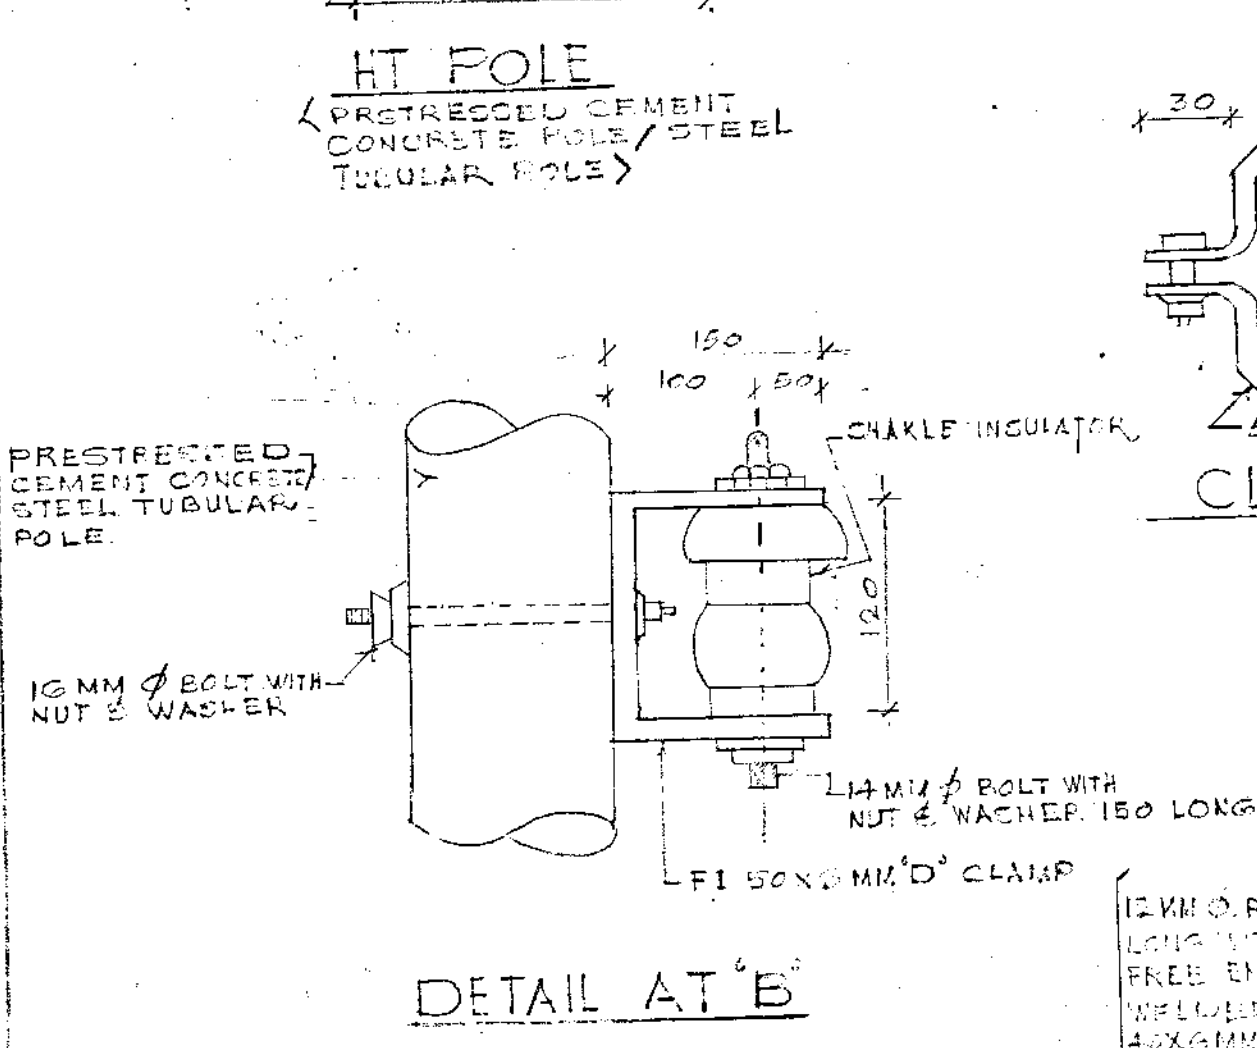 HT POLE
< PRSTRESSED CEMENT
CONCRETE POLE / STEEL
TUBULAR POLE >
30
150
100
50
SHAKLE INSULATOR
PRESTRESSED
CEMENT CONCRETE/
STEEL TUBULAR
POLE.
120
16 MM φ BOLT WITH
NUT & WASHER
14 MM φ BOLT WITH
NUT & WASHER 150 LONG
FI 50X MM 'D' CLAMP
DETAIL AT 'B'
CL
12 MM φ
LONG
FREE